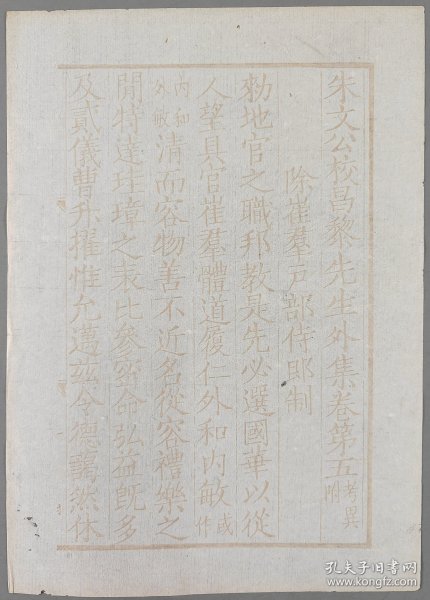 朱文公校昌黎先生外集卷第五考異附
除崔羣戸部侍郎制
勑地官之職邦教是先必選國華以從
人望具官崔羣體道履仁外和内敏或作
内和外敏清而容物善不近名從容禮樂之
間特達珪璋之表比參密命弘益旣多
及貳儀曹升擢惟允邁兹令德藹然休
孔夫子旧书网
www.kongfz.com